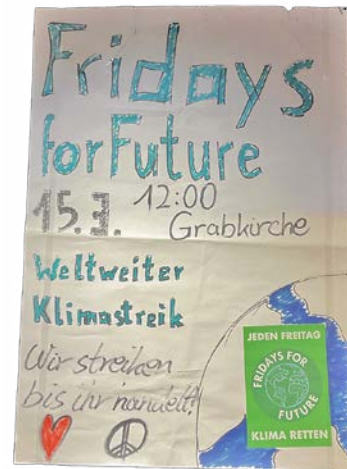 Fridays
for Future
15.3. 12:00
Grabkirche
Weltweiter
Klimastreik
Wir streiken
bis ihr handelt!
JEDEN FREITAG
FRIDAYS FOR
FUTURE
KLIMA RETTEN